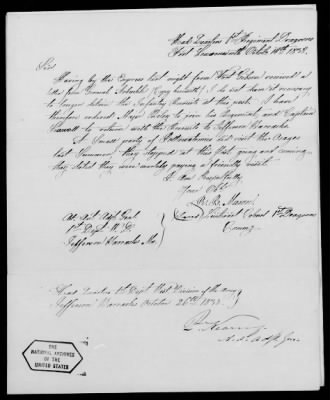 Head Quarters 1st Regiment Dragoons
Fort Leavenworth October 18th 1838.
Sir:
Having by the Express last night from Fort Gibson received a
letter from General Arbuckle (Copy herewith) I do not deem it necessary
to longer retain the Infantry Recruits at this post. I have
therefore ordered Major to join his Regiment, and Captain
to return with the Recruits to Jefferson Barracks.
A Small party of Pottawatomies did visit the Osages
last Summer, they stopped at this Post going and coming
they stated they were merely paying a friendly visit.
I Am Respectfully
Your Obt.
R. B. Mason
Lieutenant Colonel 1st Dragoons
Comg.
Adjt Genl
1st Dept W. D.
Jefferson Barracks Mo.
Head Quarters 1st Dept West Division of the Army
Jefferson Barracks October 26th 1838
Kearny
THE
NATIONAL ARCHIVES
OF THE
UNITED STATES